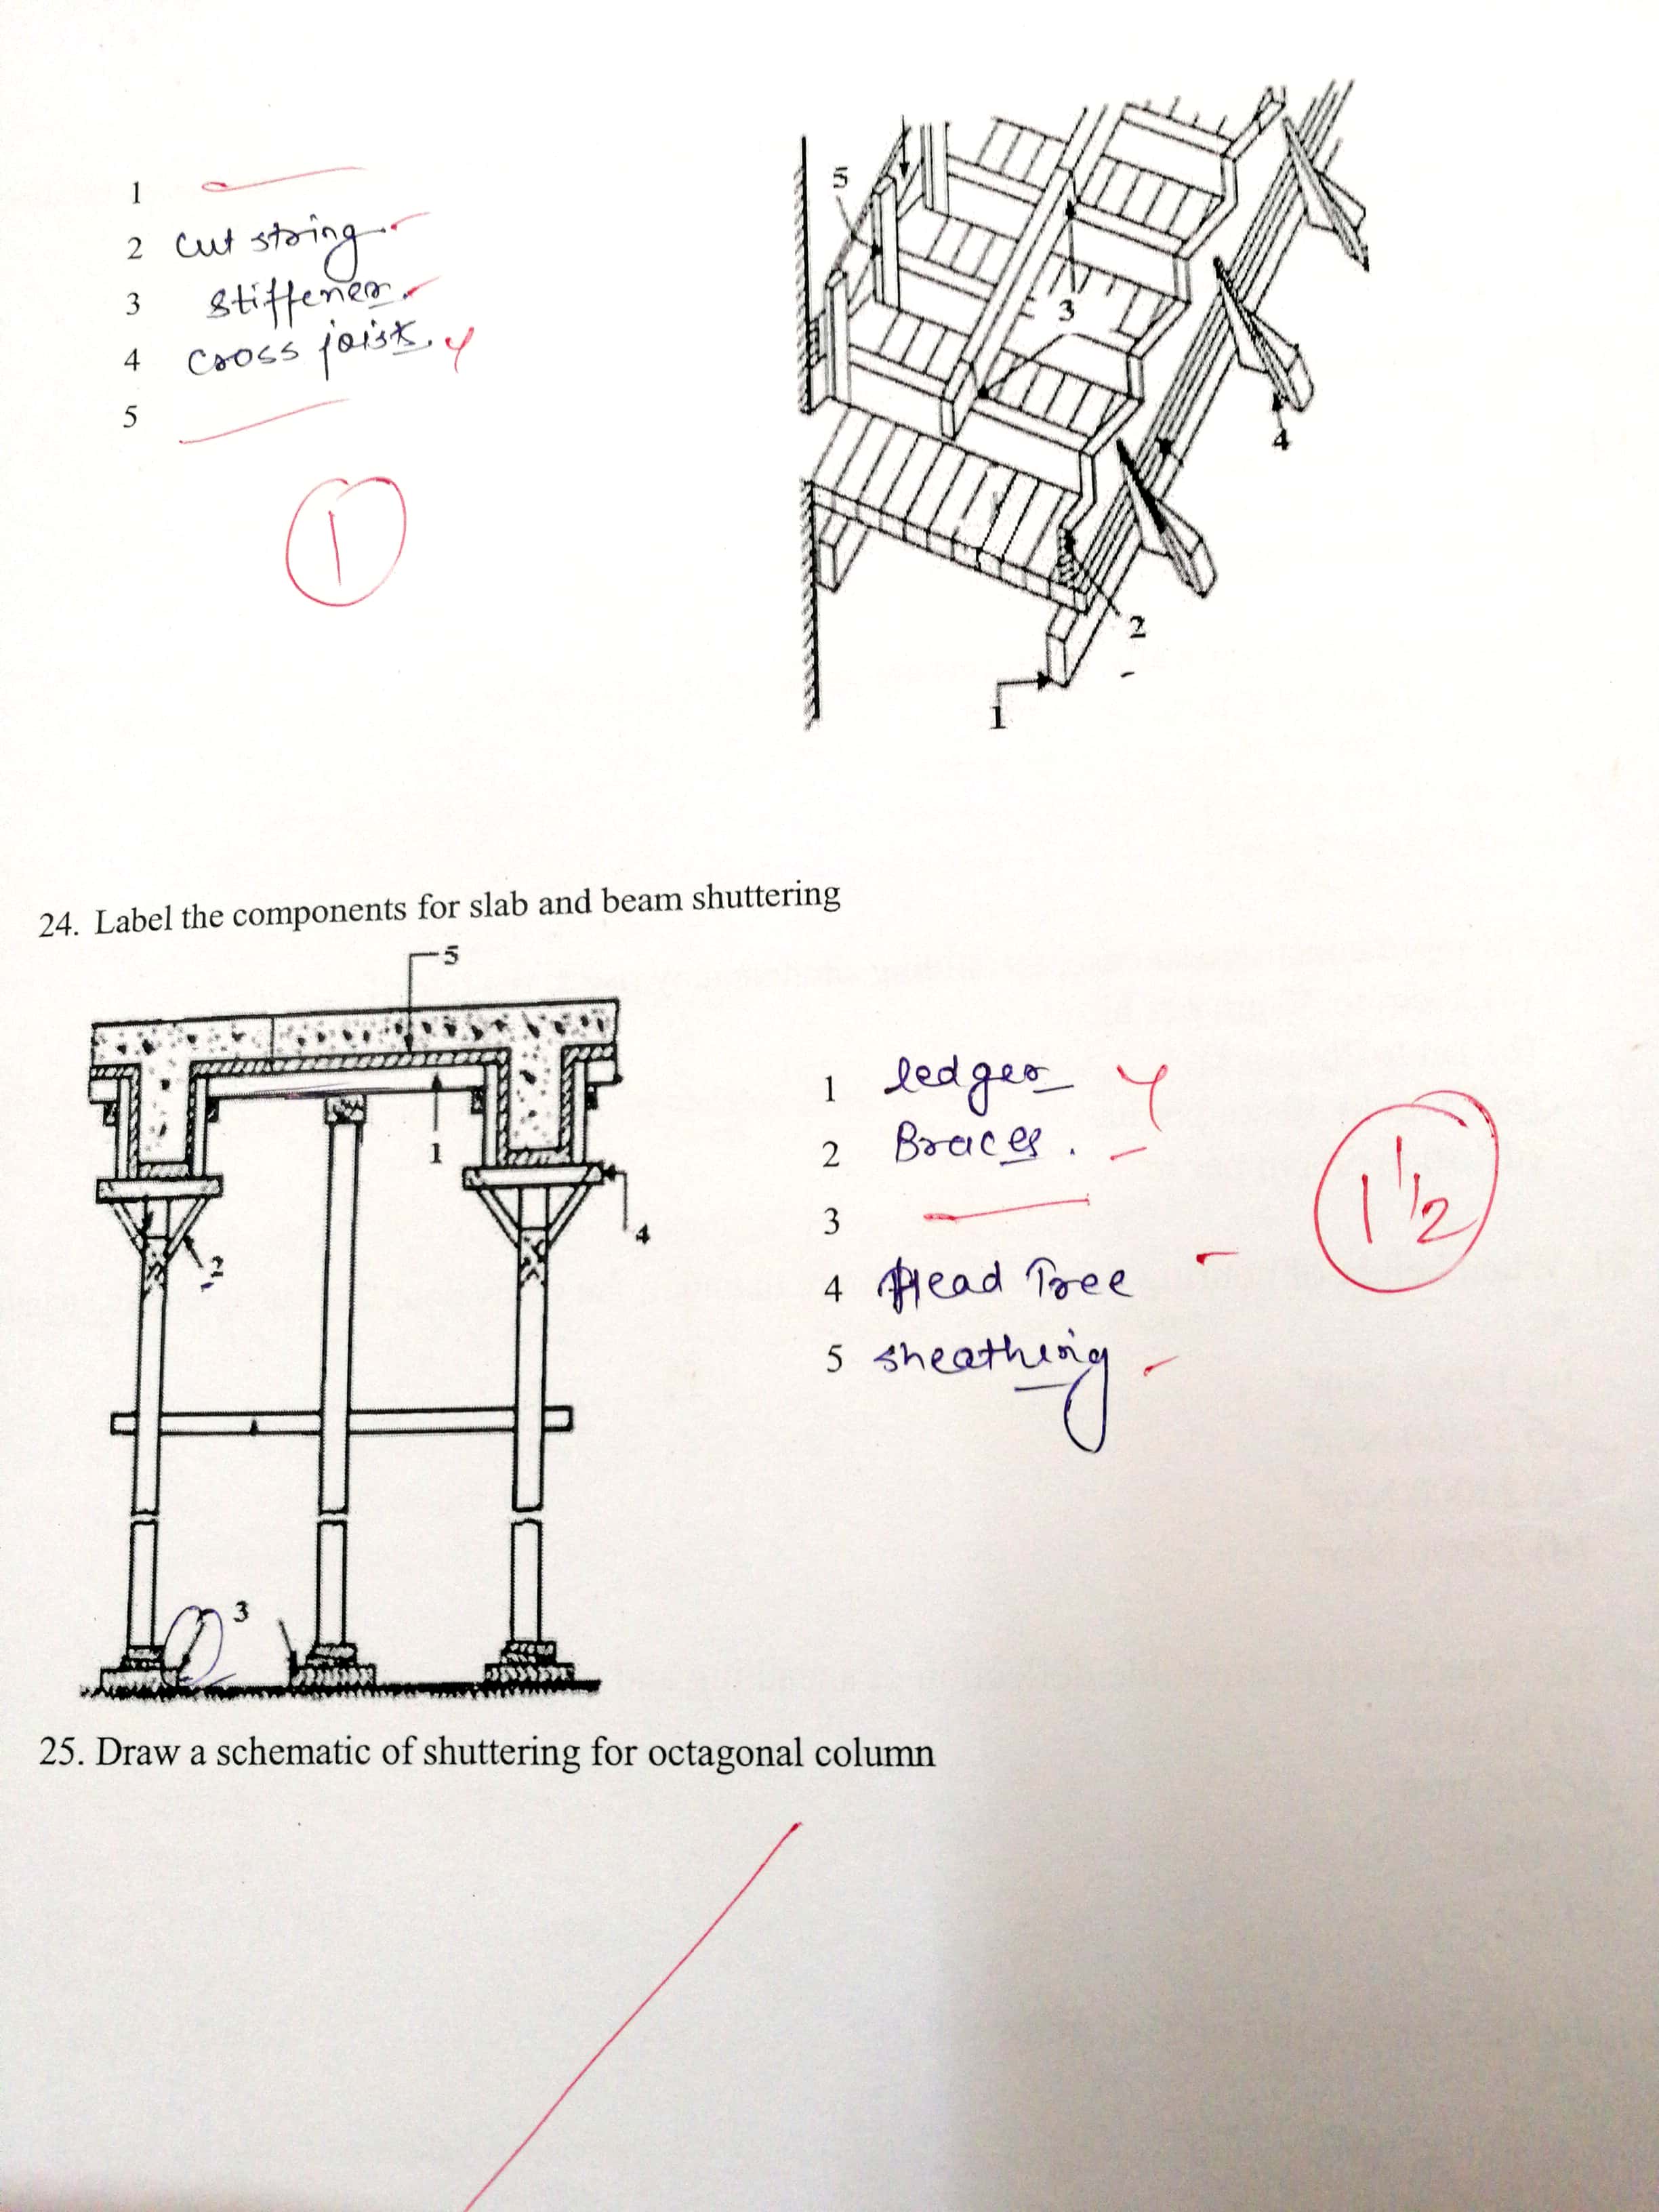 1
2 cut string
3 stiffener
4 cross joist
5
1
5
3
4
2
1
24. Label the components for slab and beam shuttering
5
1
4
2
3
1 ledger
2 Braces.
3
4 Head Tree
5 sheathing
1 1/2
25. Draw a schematic of shuttering for octagonal column